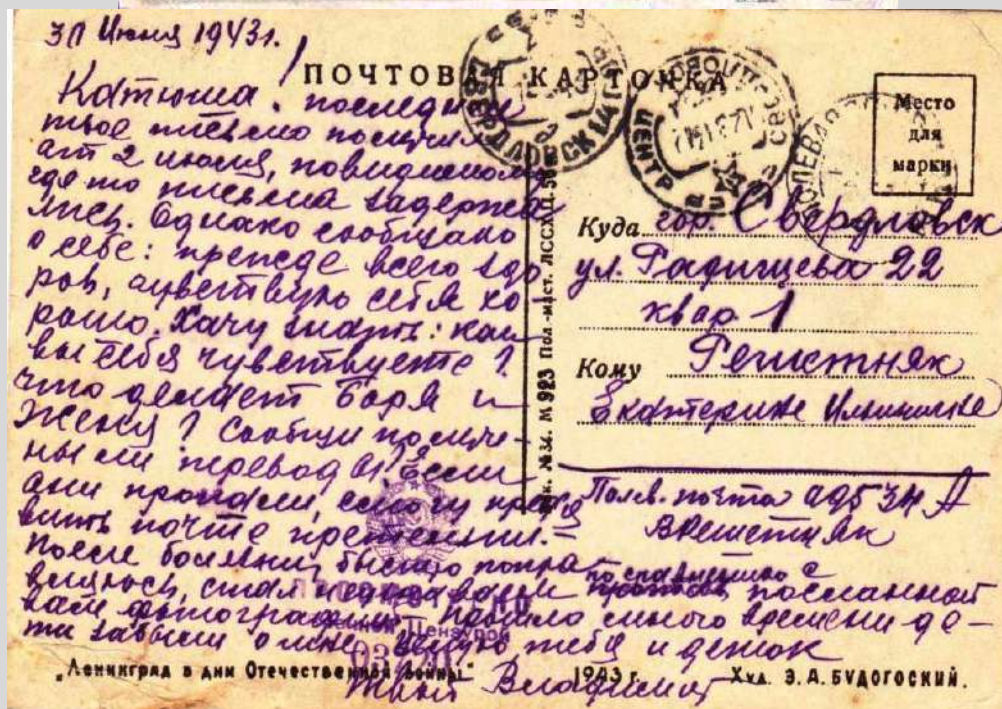 30 Июня 1943 г.
ПОЧТОВАЯ КАРТОЧКА
Катюша! последнее
твое письмо получил
от 2 июня, повидимому
где то письма задержа
лись. Однако сообщаю
о себе: прежде всего здо
ров, чувствую себя хо
рошо. Хочу знать: как
вы себя чувствуете?
что делают Боря и
Женя? Сообщи получе-
ны ли переводы? Если
они пропали, смогу предъя
вить почте претензии. =
После болезни, быстро попра
вилось, стал по сравнению с посланной
вам фотографии прошло много времени де-
ти забыли о мне целую тебя и деток
твой Владимир
Место
для
марки
Куда гор. Свердловск
ул. Радищева 22
квар 1
Кому Решетняк
Екатерине Ильиничне
Полев. почта 09534 А
ВРешетняк
СВЕРДЛОВСК
ЦЕНТР
№ 34. М 923 Пол.-маст. ЛССХ
"Ленинград в дни Отечественной войны" 1943 г. Худ. Э. А. БУДОГОСКИЙ.